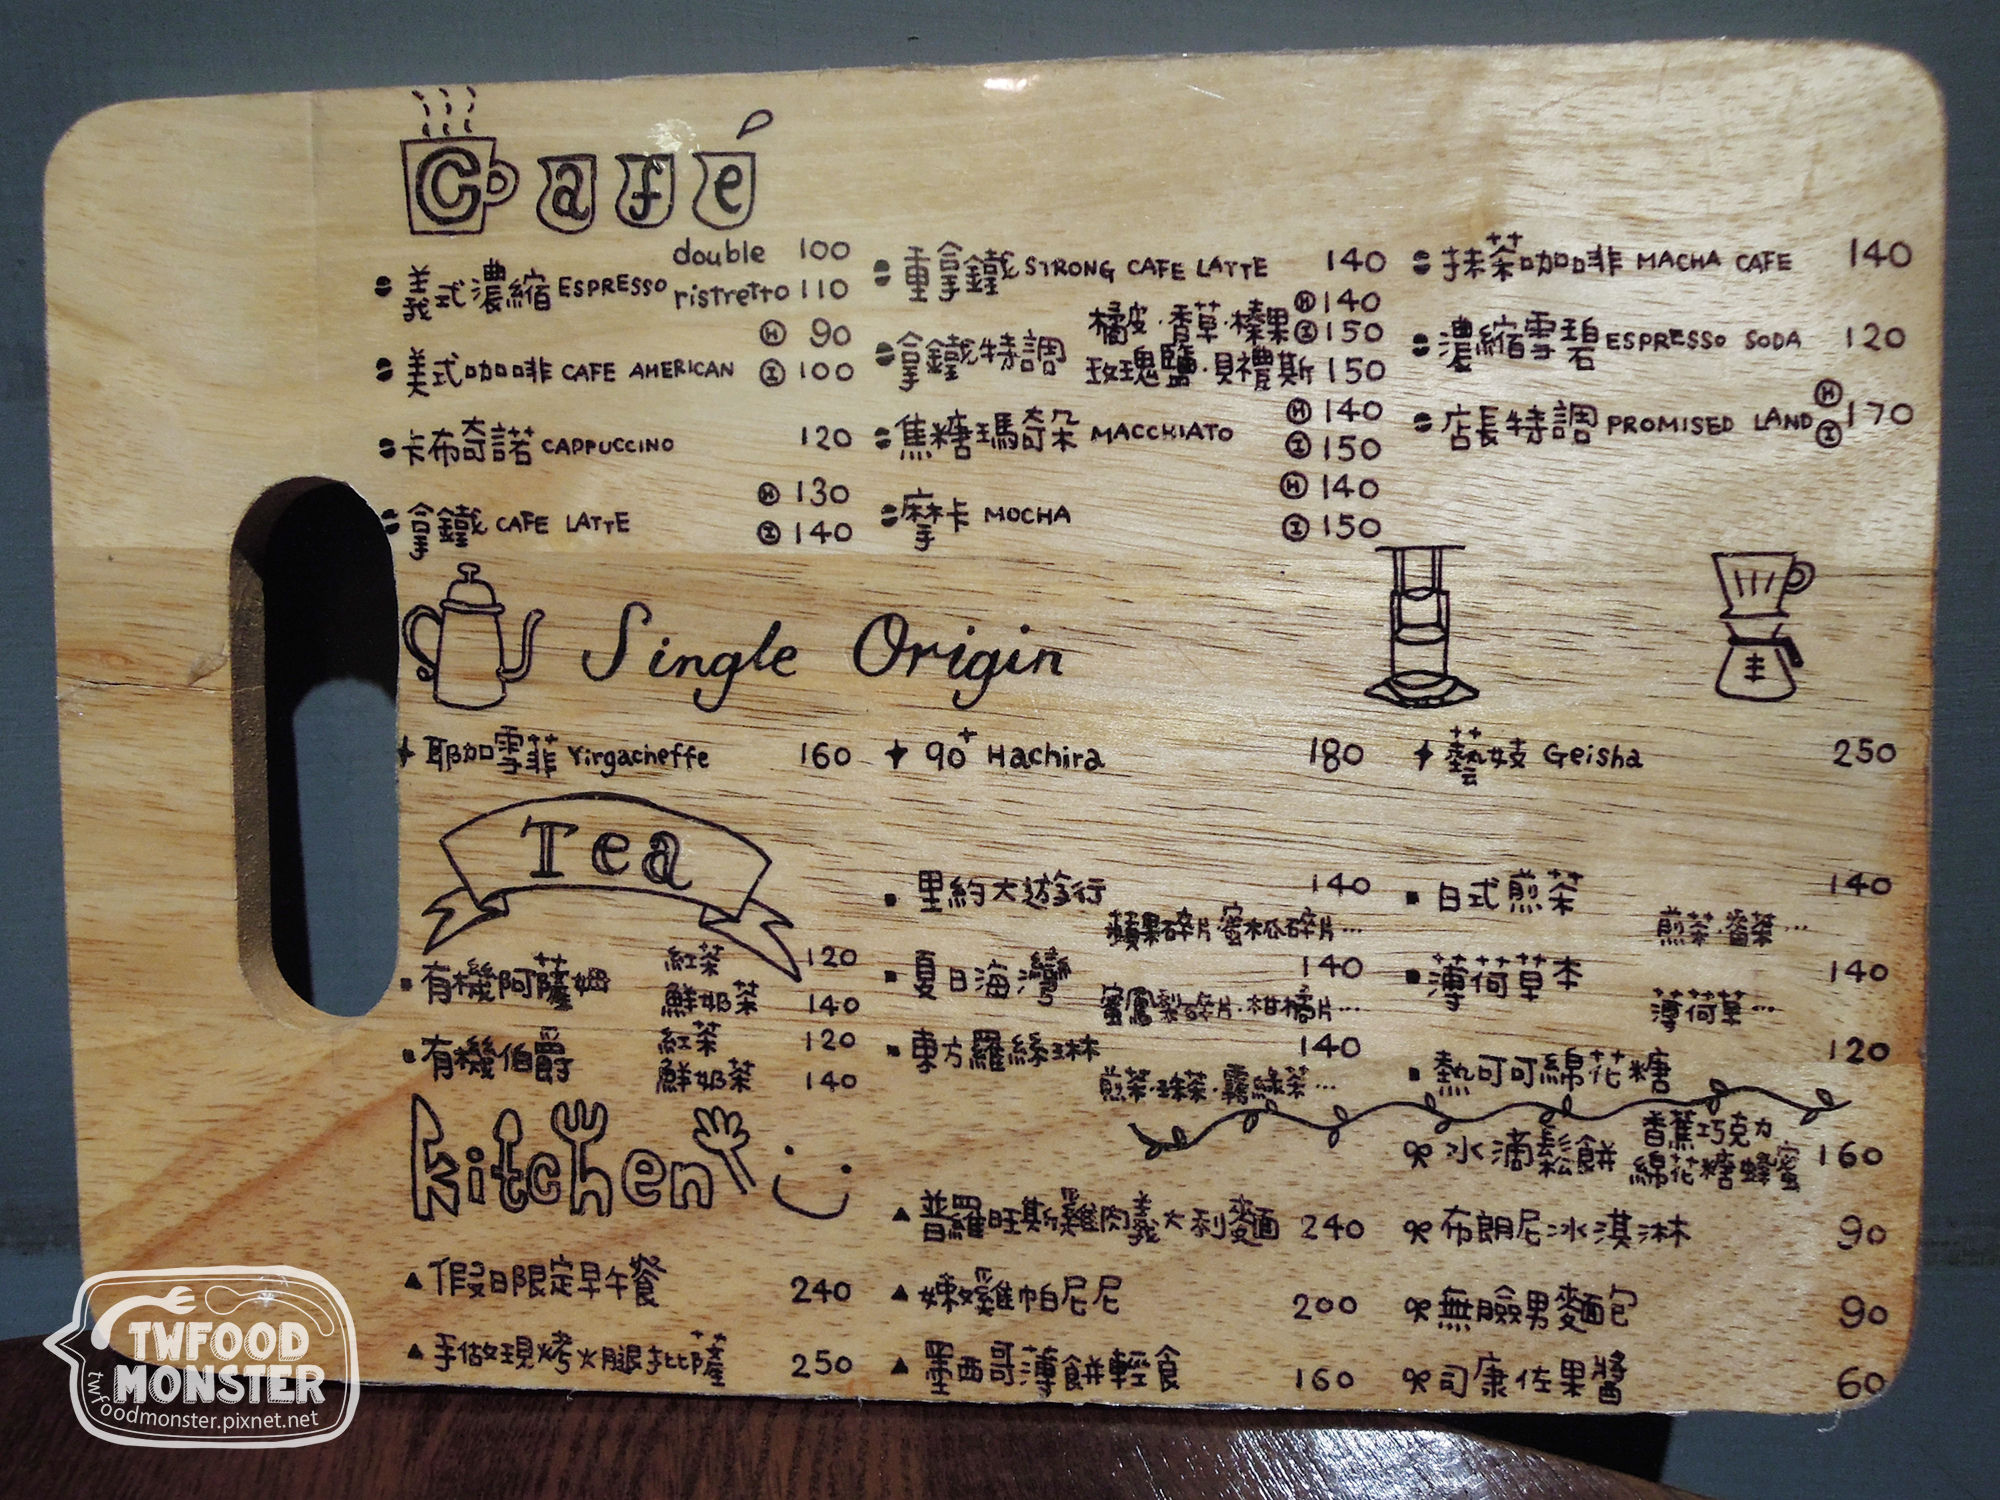 Café
義式濃縮 ESPRESSO double 100
ristretto 110
美式咖啡 CAFE AMERICAN Ⓗ 90
Ⓘ 100
卡布奇諾 CAPPUCCINO 120
拿鐵 CAFE LATTE Ⓗ 130
Ⓘ 140
重拿鐵 STRONG CAFE LATTE 140
拿鐵特調 橘皮·香草·榛果 Ⓗ 140
Ⓘ 150
玫瑰鹽·貝禮斯 150
焦糖瑪奇朵 MACCHIATO Ⓗ 140
Ⓘ 150
摩卡 MOCHA Ⓗ 140
Ⓘ 150
抹茶咖啡 MACHA CAFE 140
濃縮雪碧 ESPRESSO SODA 120
店長特調 PROMISED LAND Ⓗ Ⓘ 170
Single Origin
耶加雪菲 Yirgacheffe 160
90+ Hachira 180
藝妓 Geisha 250
Tea
有機阿薩姆 紅茶 120
鮮奶茶 140
有機伯爵 紅茶 120
鮮奶茶 140
里約大遊行 140
蘋果碎片·蜜木瓜碎片...
夏日海灣 140
蜜鳳梨碎片·柑橘片...
東方羅絲琳 140
煎茶·綠茶...
日式煎茶 140
煎茶·番茶...
薄荷草本 140
薄荷草...
熱可可綿花糖 120
kitchen
假日限定早午餐 240
手做現烤火腿批薩 250
普羅旺斯雞肉義大利麵 240
嫩雞帕尼尼 200
墨西哥薄餅輕食 160
水滴鬆餅 香蕉巧克力 160
綿花糖蜂蜜
布朗尼冰淇淋 90
無臉男麵包 90
司康佐果醬 60
TWFOOD
MONSTER
twfoodmonster.pixnet.net